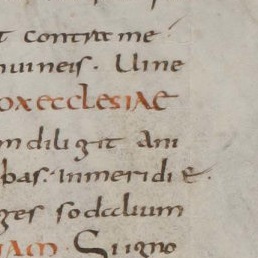 t contra me
in uineis. Uine
ox ecclesiae
m diligit ani
bas. In meridie.
ges sodalium
iam. Si igno